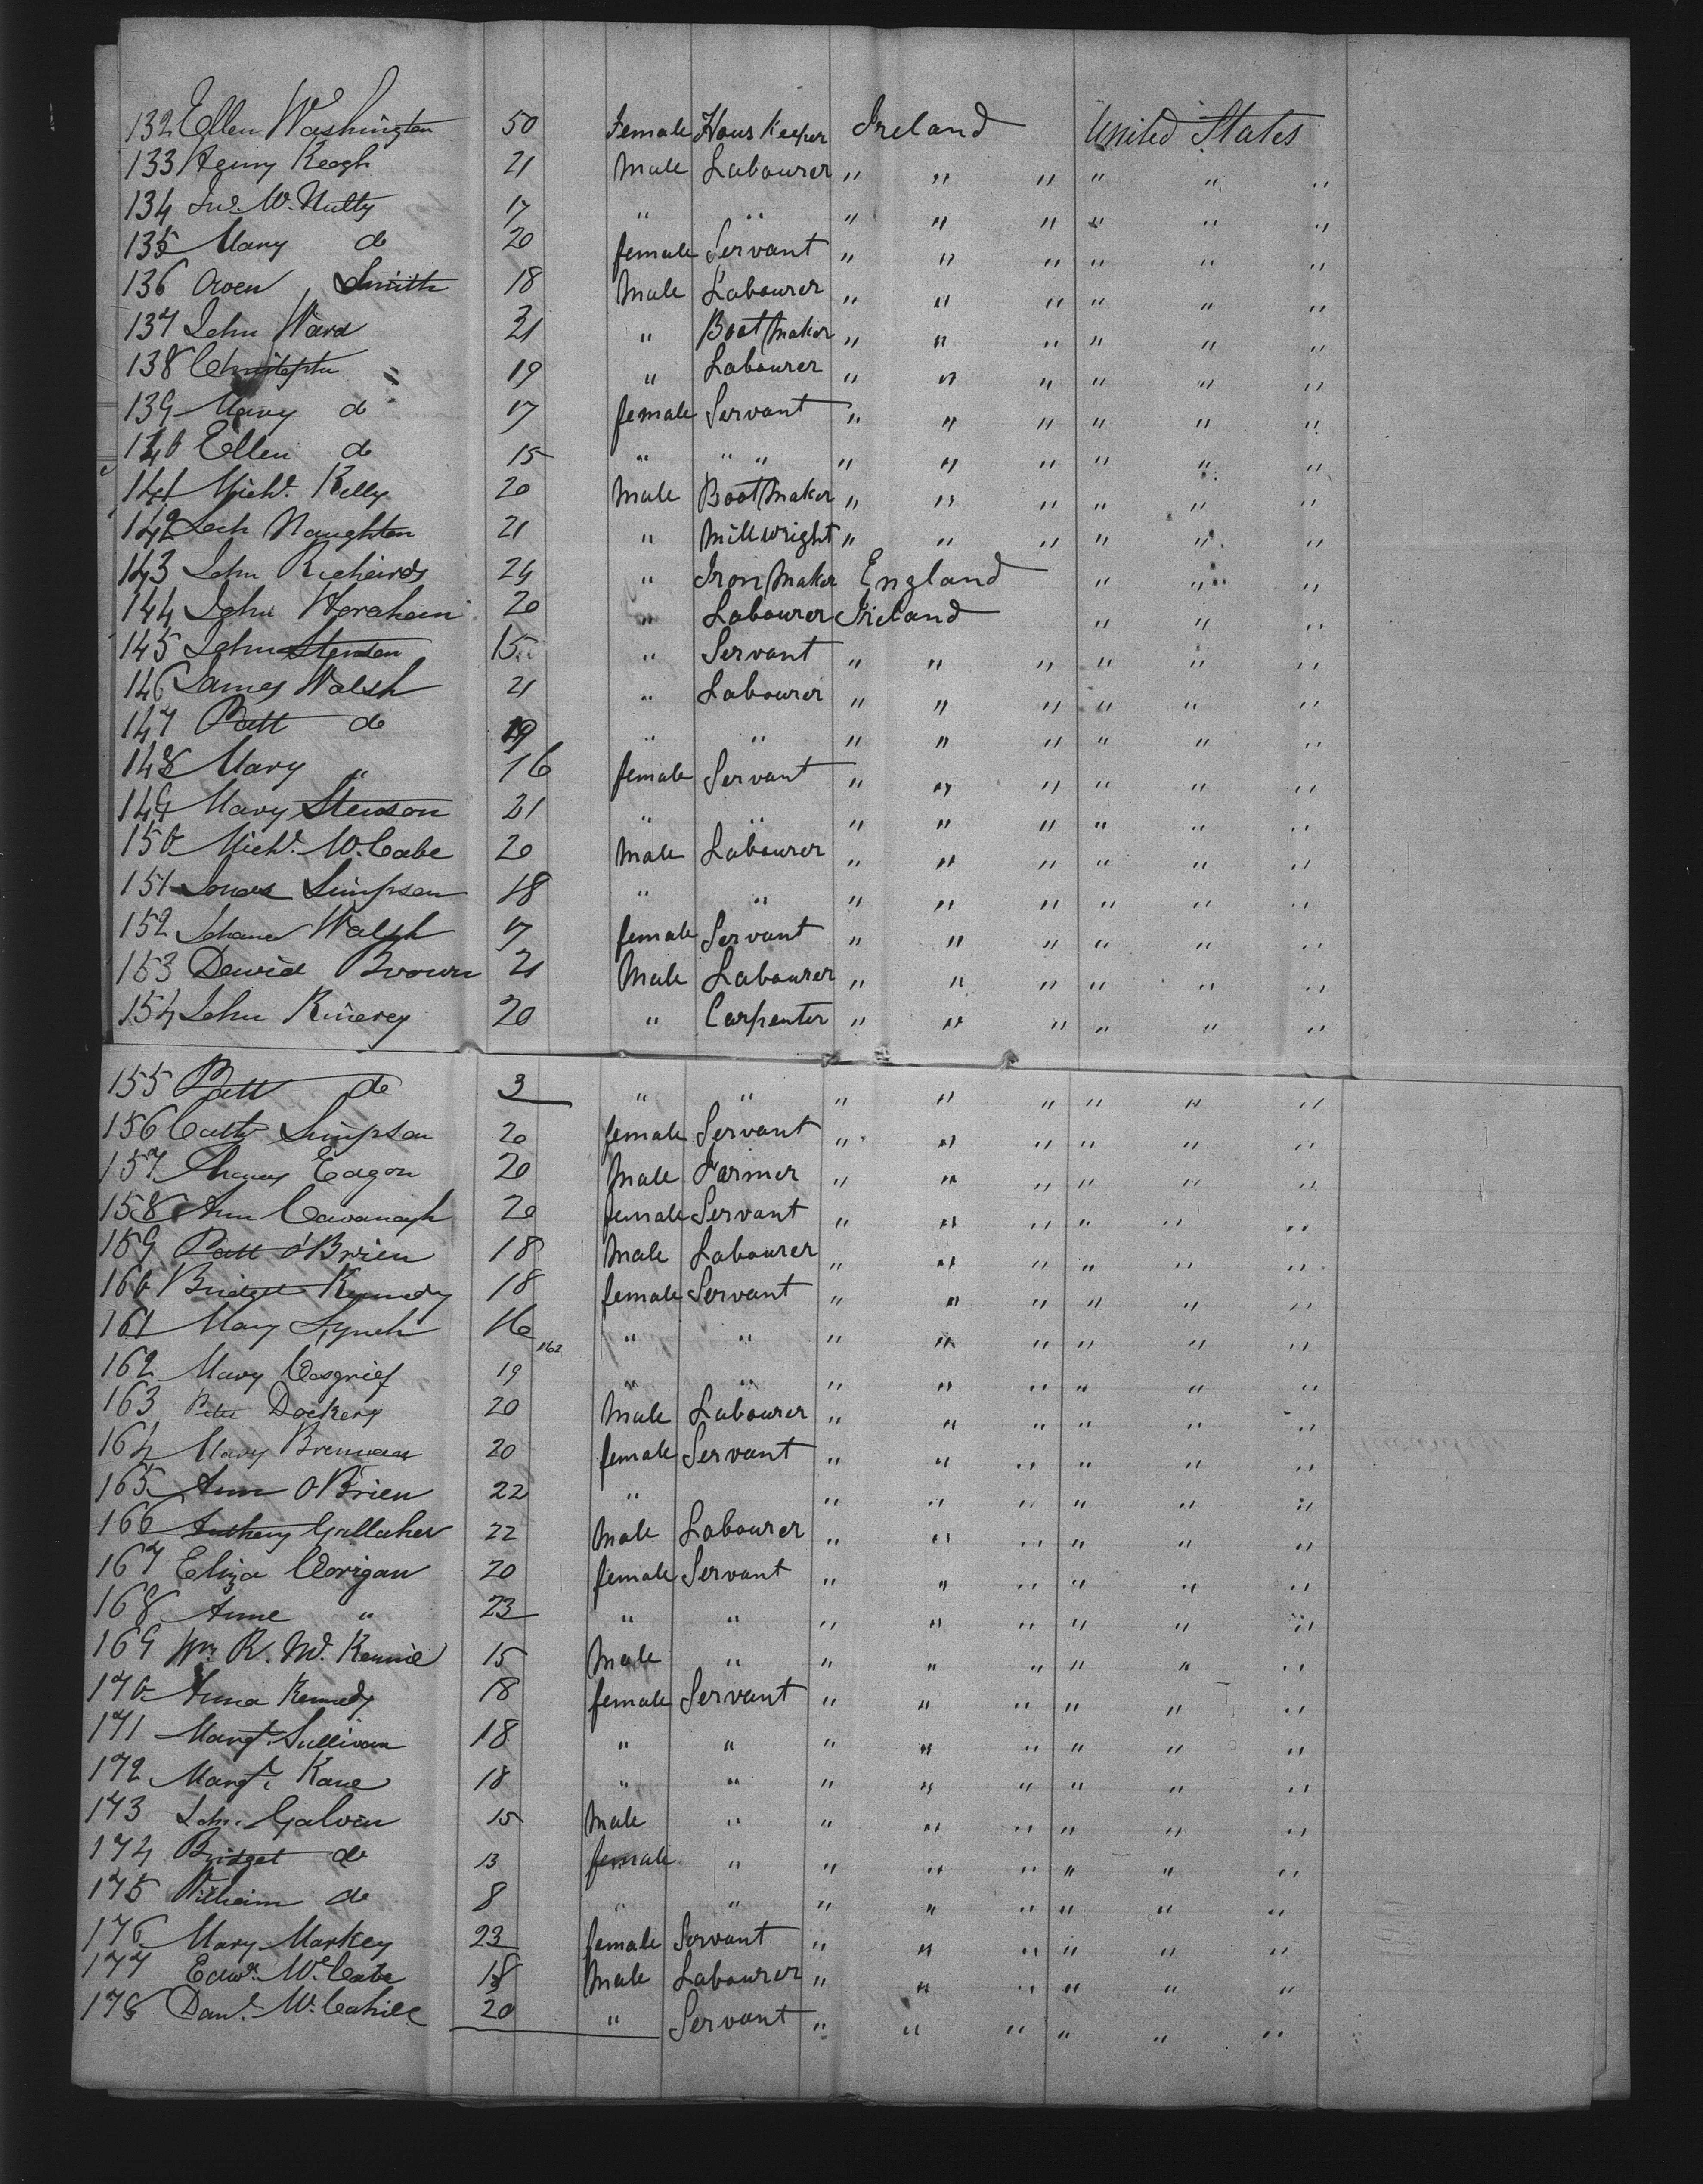 132 Ellen Washington 50 Female Hous Keeper Ireland United States
133 Henry Keogh 21 Male Labourer " " " " " "
134 Jno. McNulty 17 " " " " " " " "
135 Mary do 20 female Servant " " " " " "
136 Owen Smith 18 Male Labourer " " " " " "
137 John Ward 21 " Boot Maker " " " " " "
138 Christopher " 19 " Labourer " " " " " "
139 Mary do 17 female Servant " " " " " "
140 Ellen do 15 " " " " " " " " "
141 Michl. Kelly 20 Male Boot Maker " " " " " "
142 Naughton 21 " Millwright " " " " " "
143 John Richards 24 " Iron Maker England " " "
144 John Horahan 20 " Labourer Ireland " " "
145 John Stenson 15 " Servant " " " " " "
146 James Walsh 21 " Labourer " " " " " "
147 Patt do 19 " " " " " " " "
148 Mary " 16 female Servant " " " " " "
149 Mary Stenson 21 " " " " " " " "
150 Michl. McCabe 20 Male Labourer " " " " " "
151 Simpson 18 " " " " " " " "
152 Johana Walsh 17 female Servant " " " " " "
153 David Brown 21 Male Labourer " " " " " "
154 John Kinerey 20 " Carpenter " " " " " "
155 Patt do 3 " " " " " " " "
156 Cath Simpson 20 female Servant " " " " " "
157 Thomas Eagon 20 Male Farmer " " " " " "
158 Ann Cavanagh 20 female Servant " " " " " "
159 Patt O'Brien 18 Male Labourer " " " " " "
160 Bridget Kennedy 18 female Servant " " " " " "
161 Mary Lynch 16 " " " " " " " "
162 Mary Cosgrief 19 " " " " " " " "
163 Peter Dockery 20 Male Labourer " " " " " "
164 Mary Brennan 20 female Servant " " " " " "
165 Ann O'Brien 22 " " " " " " "
166 Anthony Gallaher 22 Male Labourer " " " " " "
167 Eliza Corrigan 20 female Servant " " " " " "
168 Anne " 23 " " " " " " " "
169 Wm. R. Mc. Kennie 15 Male " " " " " " "
170 Anna Kennedy 18 female Servant " " " " " "
171 Margt. Sullivan 18 " " " " " " " "
172 Margt. Kane 18 " " " " " " " "
173 John Galvin 15 Male " " " " " " "
174 Bridget do 13 female " " " " " " "
175 William do 8 " " " " " " " "
176 Mary Markey 23 female Servant " " " " " "
177 Edwd. McCabe 18 Male Labourer " " " " " "
178 Danl. McCahill 20 " Servant " " " " " "